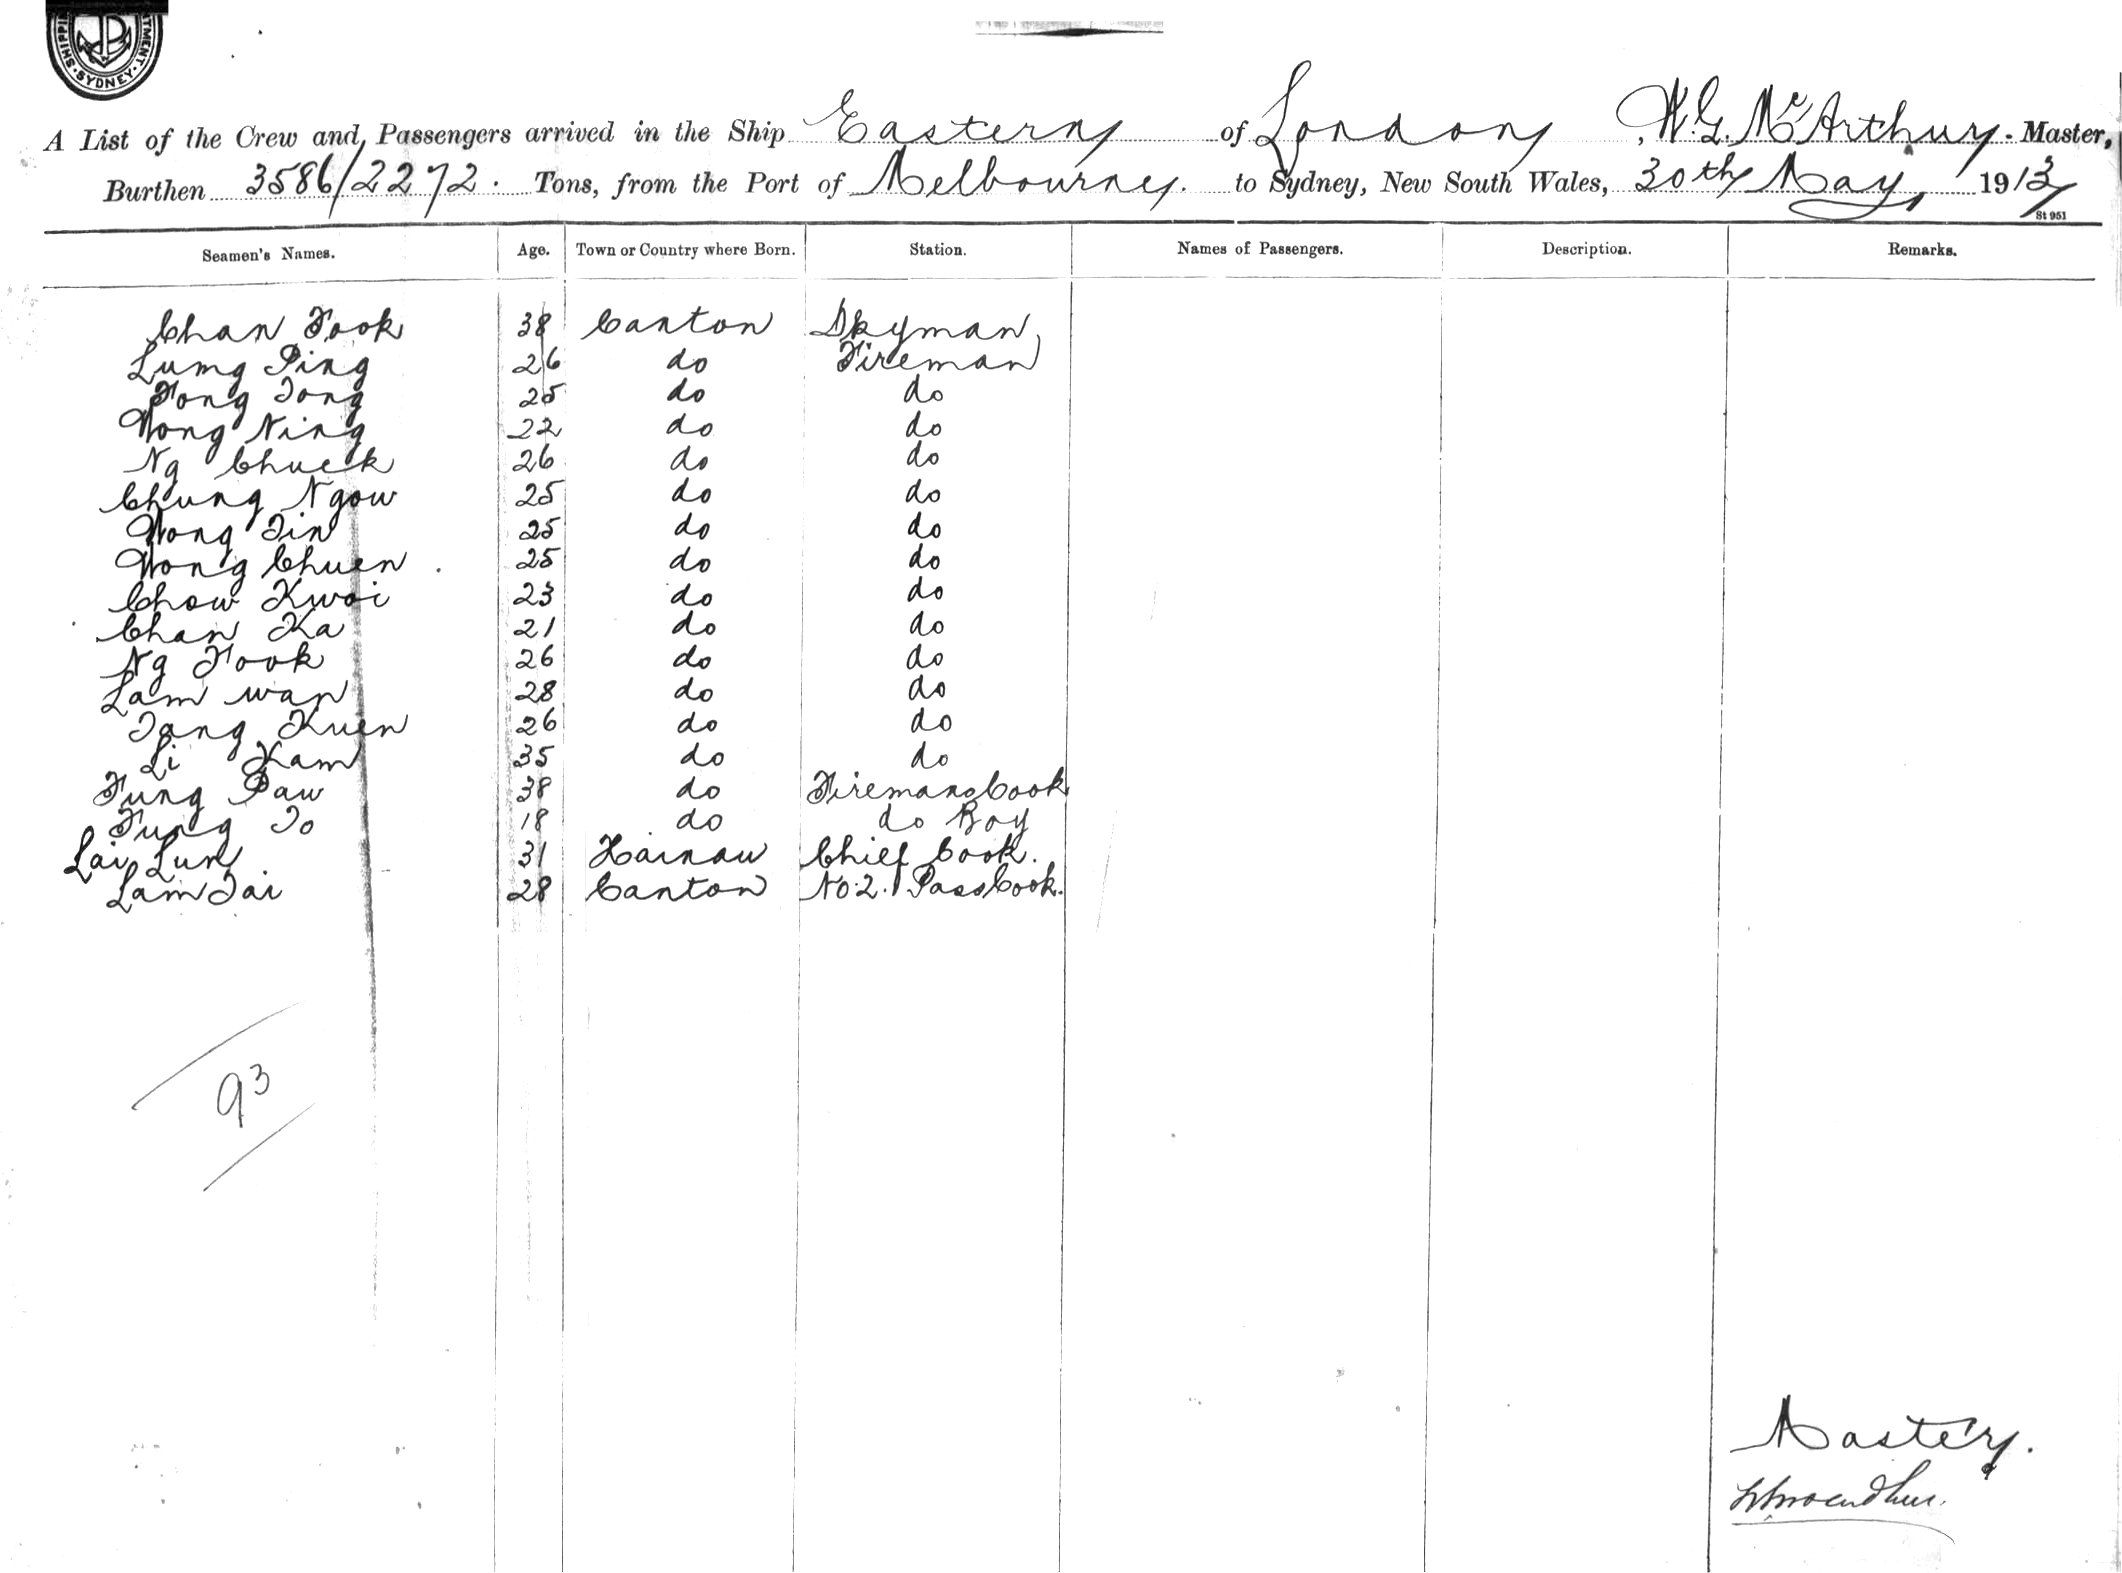 SHIPPING SYDNEY
A List of the Crew and Passengers arrived in the Ship Eastern of London, W.G. McArthur. Master,
Burthen 3586/2272. Tons, from the Port of Melbourne. to Sydney, New South Wales, 30th May, 1913
St 951
Seamen's Names. Age. Town or Country where Born. Station. Names of Passengers. Description. Remarks.
Chan Fook 38 Canton Dkyman
Lumg Ping 26 do Fireman
Fong Tong 25 do do
Wong Ning 22 do do
Ng Chuck 26 do do
Chung Ngow 25 do do
Wong Tin 25 do do
Wong Chuen 25 do do
Chow Kwoi 23 do do
Chan Ka 21 do do
Ng Fook 26 do do
Lam wan 28 do do
Tang Kuen 26 do do
Li Kam 35 do do
Fung Paw 38 do Firemans Cook
Fung To 18 do do Boy
Lai Lun 31 Hainau Chief Cook.
Lam Tai 28 Canton No. 2. Pass Cook.
93
Master.